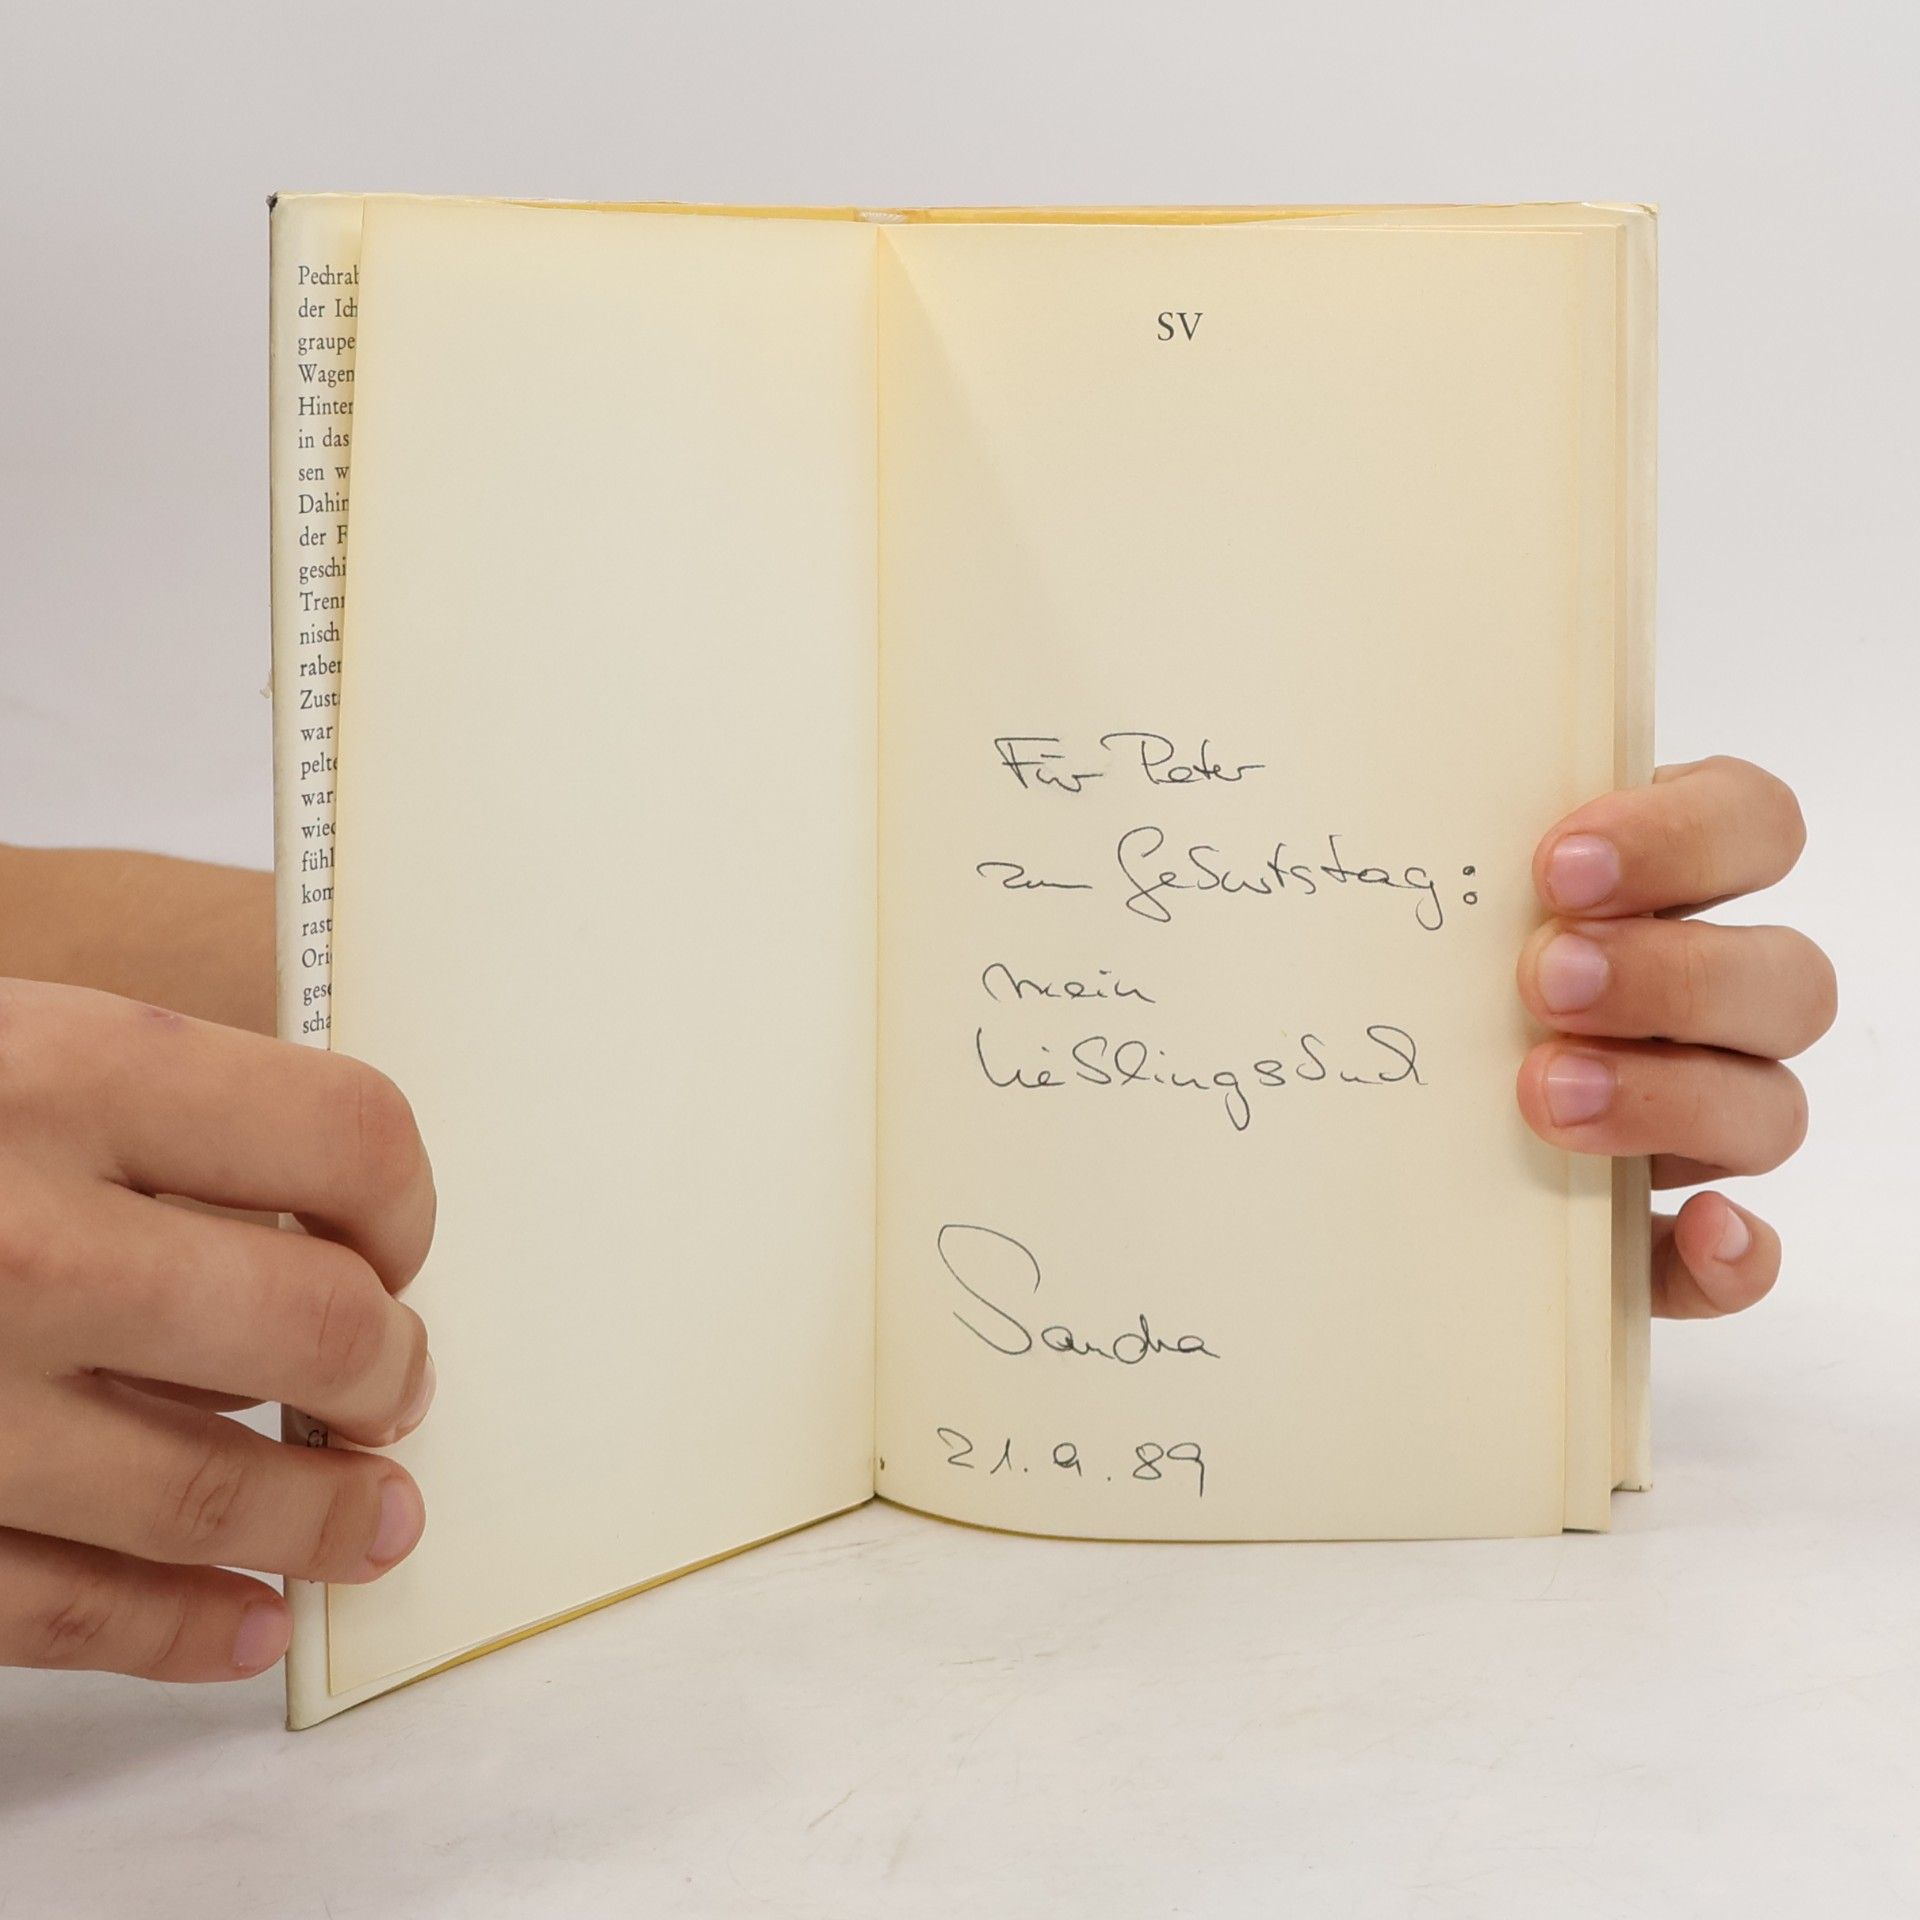 Pechrab
der Ich
graupe
Wagen
Hinter
in das
sen w
Dahin
der F
geschi
Trenn
nisch
raben
Zusta
war
pelte
war
wied
fühl
kom
rast
Ori
gese
scha
SV
Für Peter
zum Geburtstag:
mein
Lieblingsbuch
Sandra
21.9.89